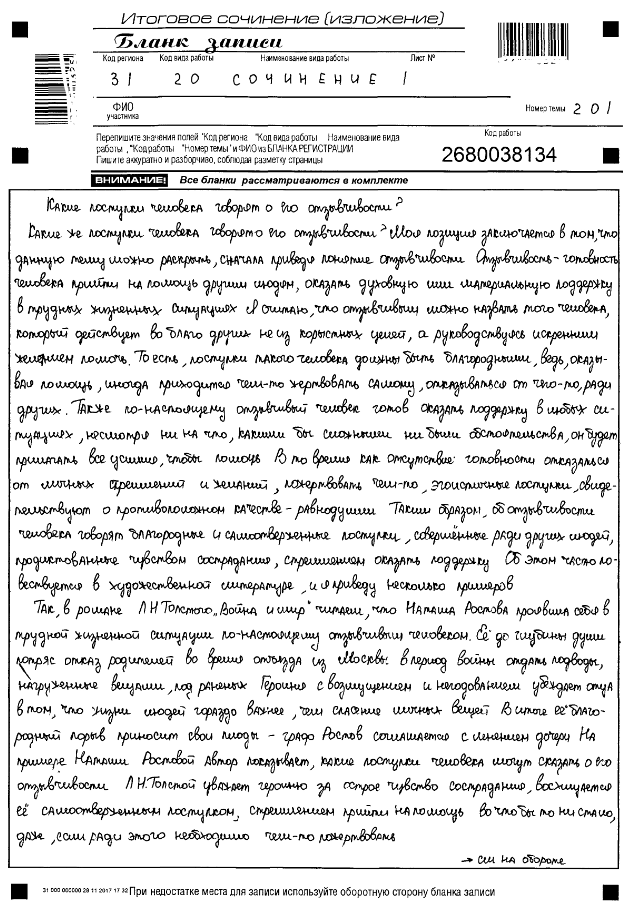 Итоговое сочинение (изложение)
Бланк записи
Код региона Код вида работы Наименование вида работы Лист №
31 20 СОЧИНЕНИЕ 1
ФИО участника
Номер темы 201
Перепишите значения полей "Код региона "Код вида работы Наименование вида
работы , "Код работы "Номер темы" и ФИО из БЛАНКА РЕГИСТРАЦИИ
Пишите аккуратно и разборчиво, соблюдая разметку страницы
Код работы
2680038134
ВНИМАНИЕ! Все бланки рассматриваются в комплекте
Какие поступки человека говорят о его отзывчивости?
Какие же поступки человека говорят о его отзывчивости? Моя позиция заключается в том, что
данную тему можно раскрыть, сначала приведя понятие отзывчивости Отзывчивость - готовность
человека прийти на помощь другим людям, оказать духовную или материальную поддержку
в трудных жизненных ситуациях Я считаю, что отзывчивым можно назвать того человека,
который действует во благо других не из корыстных целей, а руководствуясь искренним
желанием помочь. То есть, поступки такого человека должны быть благородными, ведь, оказы-
вая помощь, иногда приходится чем-то жертвовать самому, отказываться от чего-то, ради
других. Также по-настоящему отзывчивый человек готов оказать поддержку в любых си-
туациях, несмотря ни на что, какими бы сложными ни были обстоятельства, он будет
прилагать все усилия, чтобы помочь В то время как отсутствие готовности отказаться
от личных стремлений и желаний, пожертвовать чем-то, эгоистичные поступки, свиде-
тельствуют о противоположном качестве - равнодушии Таким образом, об отзывчивости
человека говорят благородные и самоотверженные поступки, совершённые ради других людей,
продиктованные чувством сострадания, стремлением оказать поддержку Об этом часто по-
вествуется в художественной литературе, и я приведу несколько примеров
Так, в романе Л Н Толстого „Война и мир" читаем, что Наташа Ростова проявила себя в
трудной жизненной ситуации по-настоящему отзывчивым человеком. Её до глубины души
потряс отказ родителей во время отъезда из Москвы в период войны отдать подводы,
нагруженные вещами, под раненых Героиня с возмущением и негодованием убеждает отца
в том, что жизни людей гораздо важнее, чем спасение личных вещей В итоге её благо-
родный порыв приносит свои плоды - граф Ростов соглашается с мнением дочери На
примере Наташи Ростовой Автор показывает, какие поступки человека могут сказать о его
отзывчивости Л Н Толстой уважает героиню за острое чувство сострадания, восхищается
её самоотверженным поступком, стремлением прийти на помощь во что бы то ни стало,
даже, если ради этого необходимо чем-то пожертвовать
→ см на обороте
31 000 000000 28 11 2017 17 32 При недостатке места для записи используйте оборотную сторону бланка записи